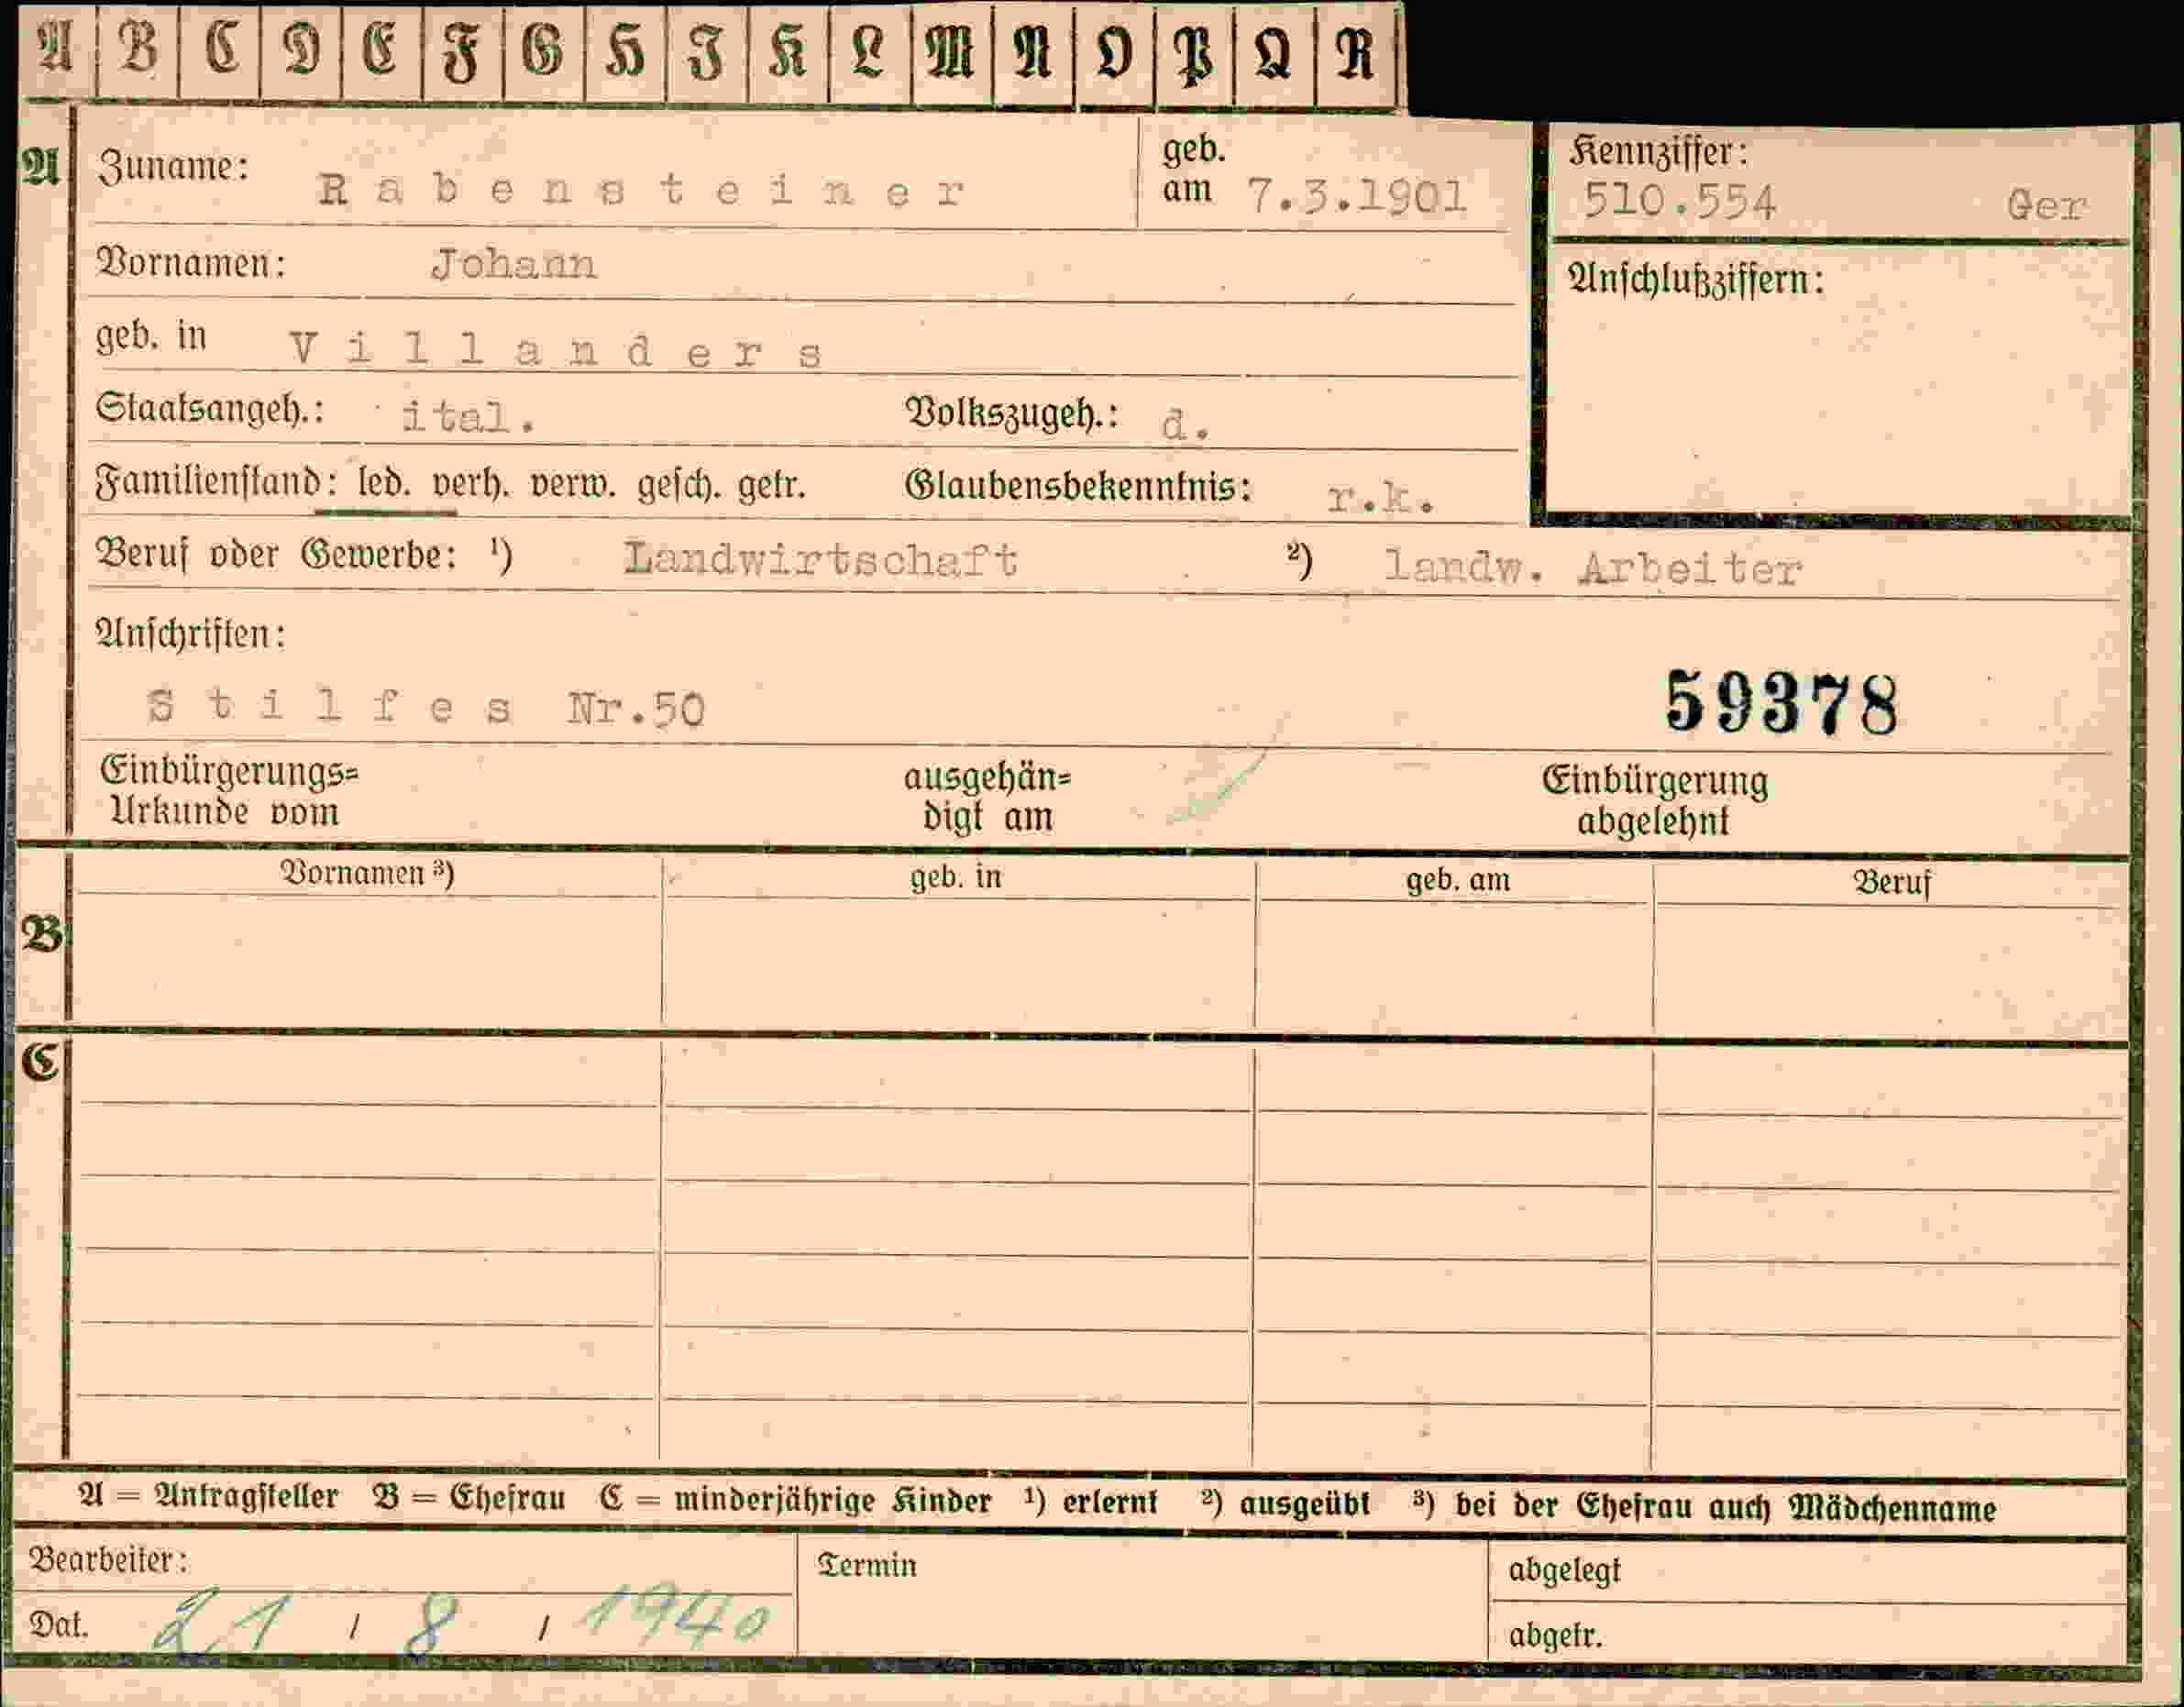 A B C D E F G H J K L M N O P Q R
A Zuname: Rabensteiner geb. am 7.3.1901 Kennziffer: 510.554 Ger
Vornamen: Johann Anschlußziffern:
geb. in Villanders
Staatsangeh.: ital. Volkszugeh.: d.
Familienstand: led. verh. verw. gesch. getr. Glaubensbekenntnis: r.k.
Beruf oder Gewerbe: ¹) Landwirtschaft ²) landw. Arbeiter
Anschriften:
Stilfes Nr.50 59378
Einbürgerungs= ausgehän= Einbürgerung
Urkunde vom digt am abgelehnt
Vornamen ³) geb. in geb. am Beruf
B
C
A = Antragsteller B = Ehefrau C = minderjährige Kinder ¹) erlernt ²) ausgeübt ³) bei der Ehefrau auch Mädchenname
Bearbeiter: Termin abgelegt
Dat. 21 / 8 / 1940 abgetr.